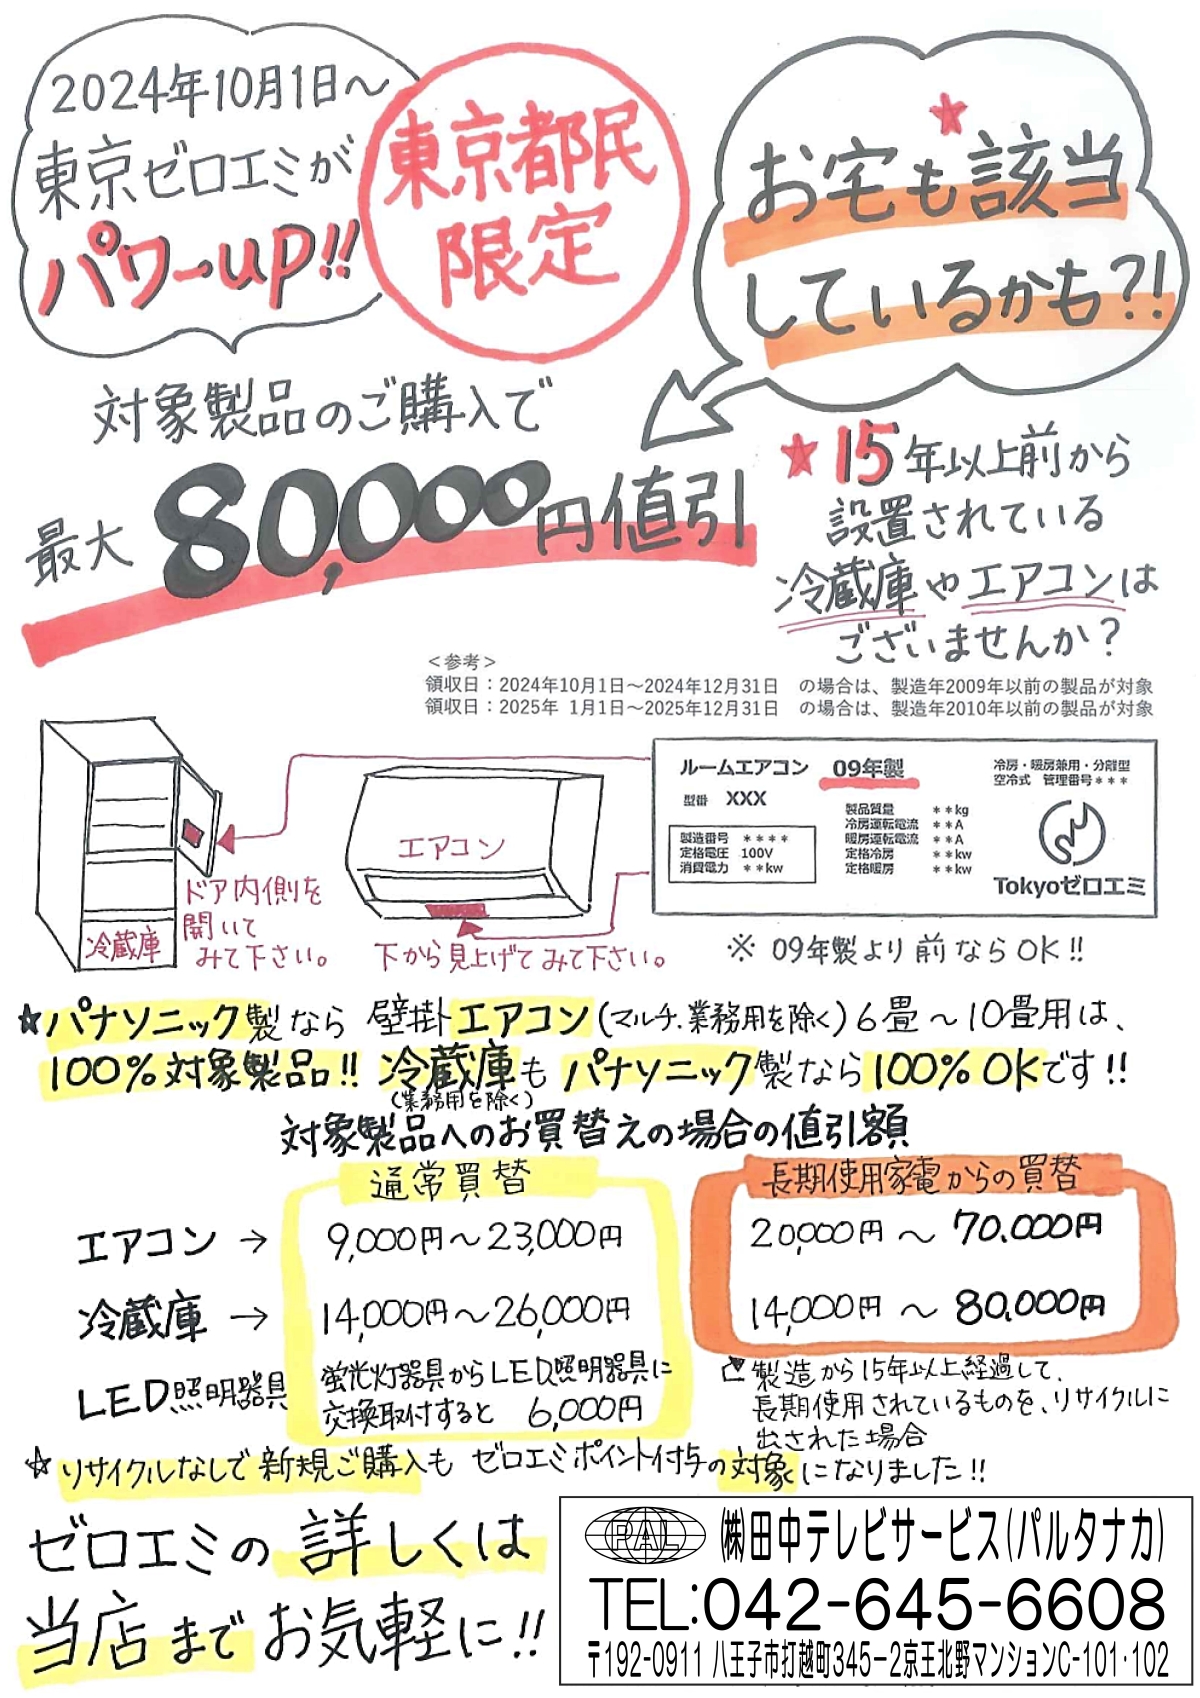 2024年10月1日～
東京ゼロエミが
パワーup!!
東京都民
限定
お宅も該当
しているかも?!
対象製品のご購入で
最大 80,000円値引
★15年以上前から
設置されている
冷蔵庫やエアコンは
ございませんか？
＜参考＞
領収日：2024年10月1日～2024年12月31日　の場合は、製造年2009年以前の製品が対象
領収日：2025年 1月1日～2025年12月31日　の場合は、製造年2010年以前の製品が対象
冷蔵庫
ドア内側を
開いて
みて下さい。
エアコン
下から見上げてみて下さい。
ルームエアコン 09年製
型番 XXX
冷房・暖房兼用・分離型
空冷式 管理番号＊＊＊
製造番号 ＊＊＊＊
定格電圧 100V
消費電力 ＊＊kw
製品質量 ＊＊kg
冷房運転電流 ＊＊A
暖房運転電流 ＊＊A
定格冷房 ＊＊kw
定格暖房 ＊＊kw
Tokyoゼロエミ
※ 09年製より前ならOK!!
☆パナソニック製なら 壁掛エアコン(マルチ.業務用を除く)6畳～10畳用は、
100%対象製品!! 冷蔵庫もパナソニック製なら100%OKです!!
(業務用を除く)
対象製品へのお買替えの場合の値引額
通常買替
長期使用家電からの買替
エアコン→ 9,000円～23,000円 20,000円～70,000円
冷蔵庫→ 14,000円～26,000円 14,000円～80,000円
LED照明器具 蛍光灯器具からLED照明器具に
交換取付すると 6,000円
製造から15年以上経過して、
長期使用されているものを、リサイクルに
出された場合
☆リサイクルなしで新規ご購入も ゼロエミポイント付与の対象になりました!!
ゼロエミの詳しくは
当店までお気軽に!!
PAL ㈱田中テレビサービス(パルタナカ)
TEL:042-645-6608
〒192-0911 八王子市打越町345-2京王北野マンションC-101･102